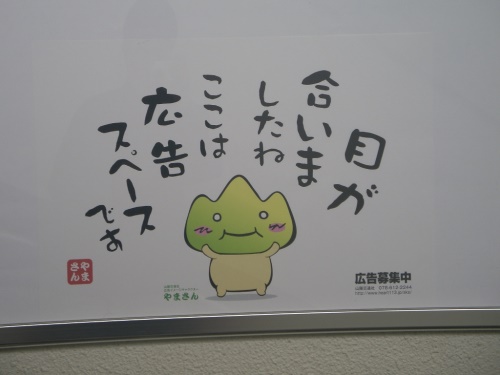 目が
合いま
したね
ここは
広告
スペース
です
やま
さん
やまさん
広告募集中